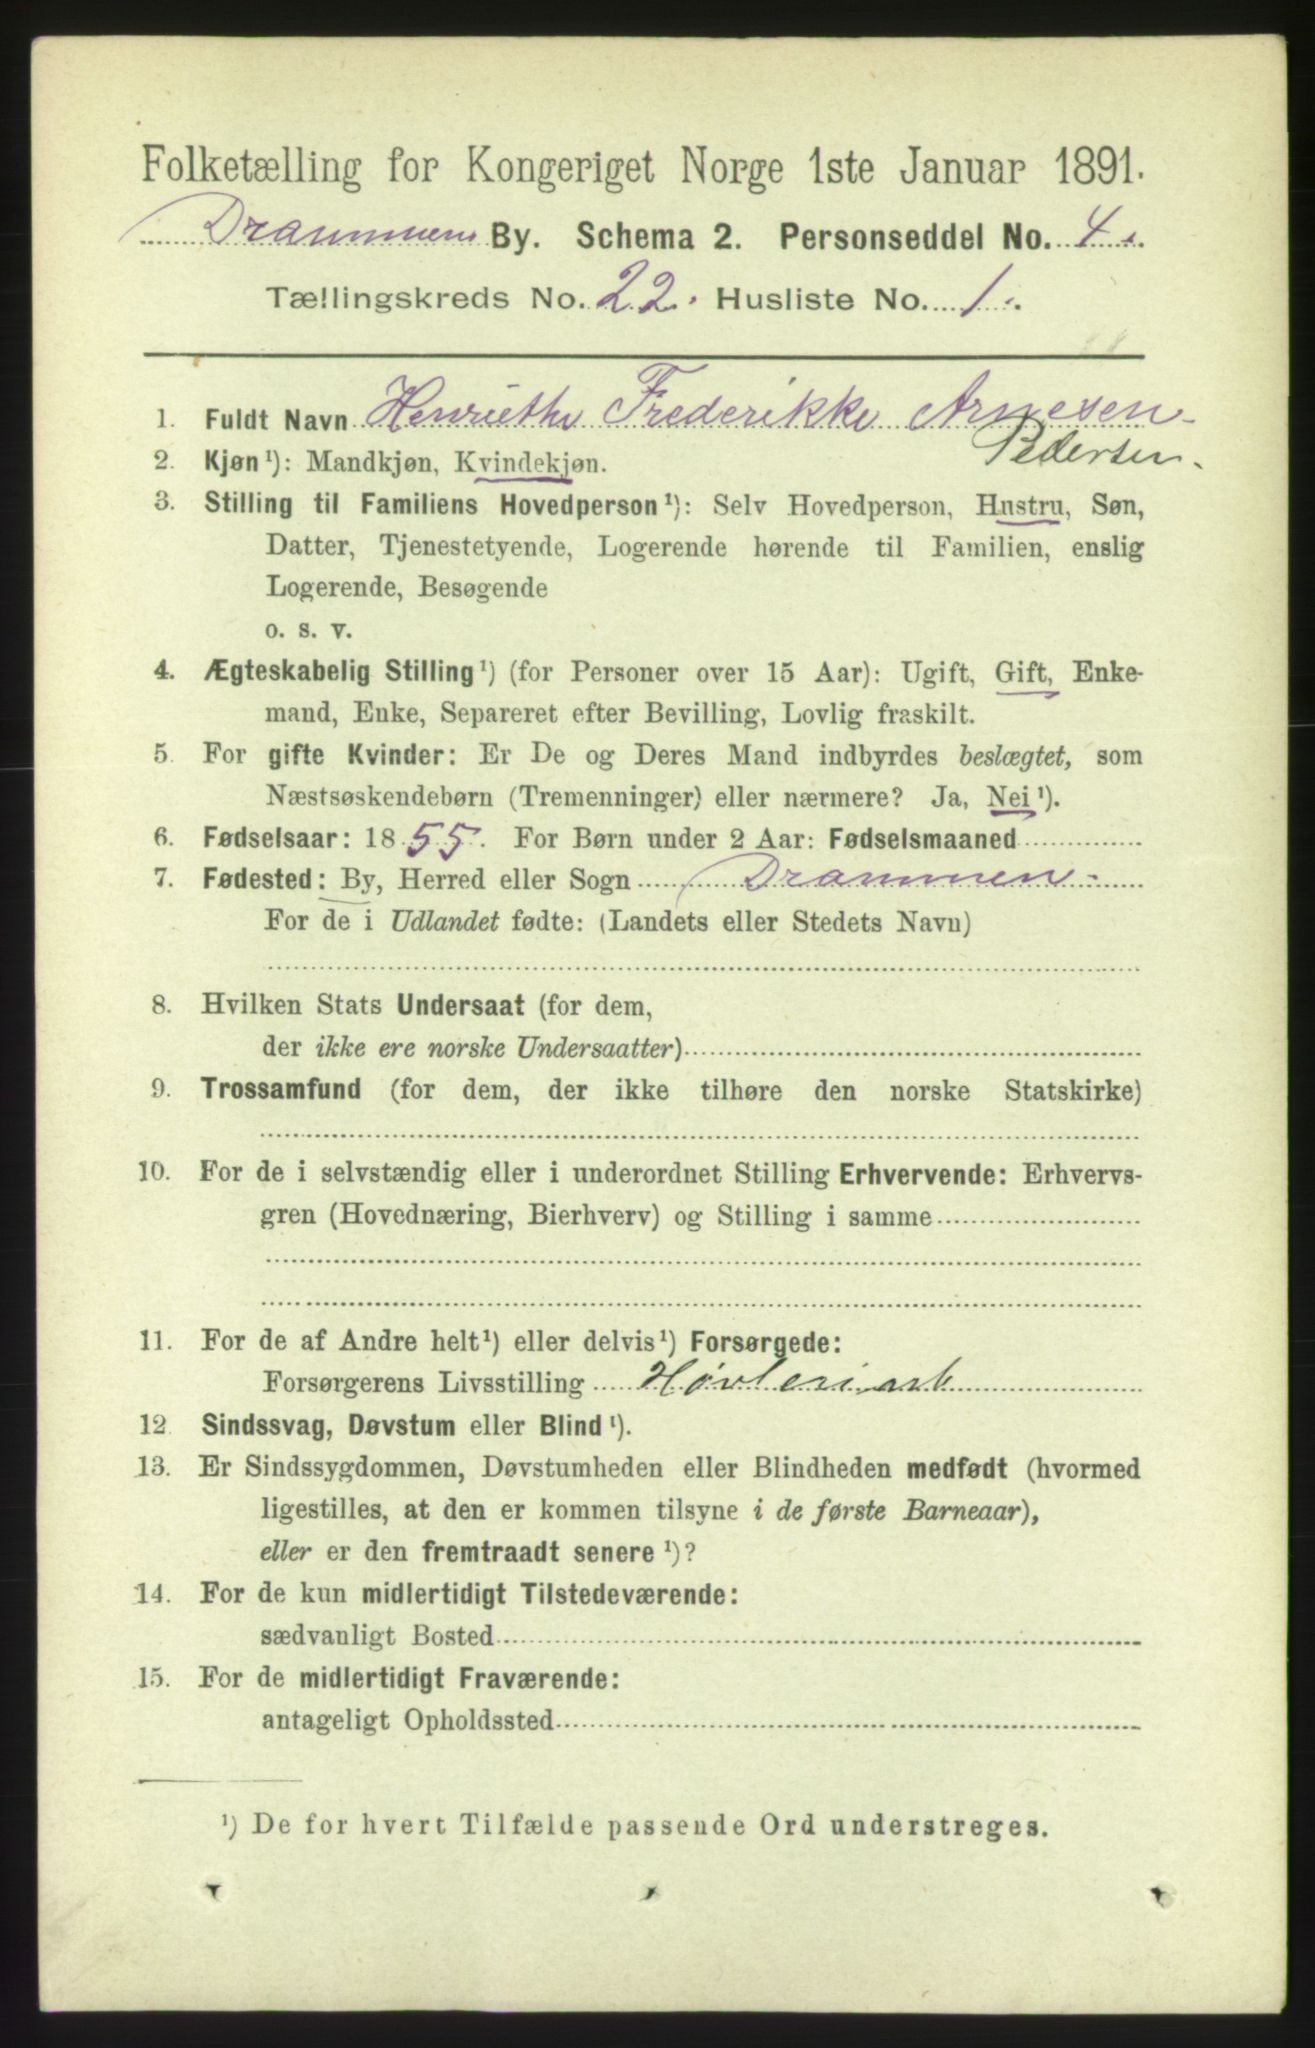 Folketælling for Kongeriget Norge 1ste Januar 1891.
Drammens By. Schema 2. Personseddel No. 4.
Tællingskreds No. 22. Husliste No. 1.
1. Fuldt Navn Henriethe Frederikke Arnesen
Pedersen.
2. Kjøn¹): Mandkjøn, Kvindekjøn.
3. Stilling til Familiens Hovedperson¹): Selv Hovedperson, Hustru, Søn,
Datter, Tjenestetyende, Logerende hørende til Familien, enslig
Logerende, Besøgende
o. s. v.
4. Ægteskabelig Stilling¹) (for Personer over 15 Aar): Ugift, Gift, Enke-
mand, Enke, Separeret efter Bevilling, Lovlig fraskilt.
5. For gifte Kvinder: Er De og Deres Mand indbyrdes beslægtet, som
Næstsøskendebørn (Tremenninger) eller nærmere? Ja, Nei¹).
6. Fødselsaar: 1855. For Børn under 2 Aar: Fødselsmaaned
7. Fødested: By, Herred eller Sogn Drammen
For de i Udlandet fødte: (Landets eller Stedets Navn)
8. Hvilken Stats Undersaat (for dem,
der ikke ere norske Undersaatter)
9. Trossamfund (for dem, der ikke tilhøre den norske Statskirke)
10. For de i selvstændig eller i underordnet Stilling Erhvervende: Erhvervs-
gren (Hovednæring, Bierhverv) og Stilling i samme
11. For de af Andre helt¹) eller delvis¹) Forsørgede:
Forsørgerens Livsstilling Høvleriarb
12. Sindssvag, Døvstum eller Blind¹).
13. Er Sindssygdommen, Døvstumheden eller Blindheden medfødt (hvormed
ligestilles, at den er kommen tilsyne i de første Barneaar),
eller er den fremtraadt senere¹)?
14. For de kun midlertidigt Tilstedeværende:
sædvanligt Bosted
15. For de midlertidigt Fraværende:
antageligt Opholdssted
¹) De for hvert Tilfælde passende Ord understreges.